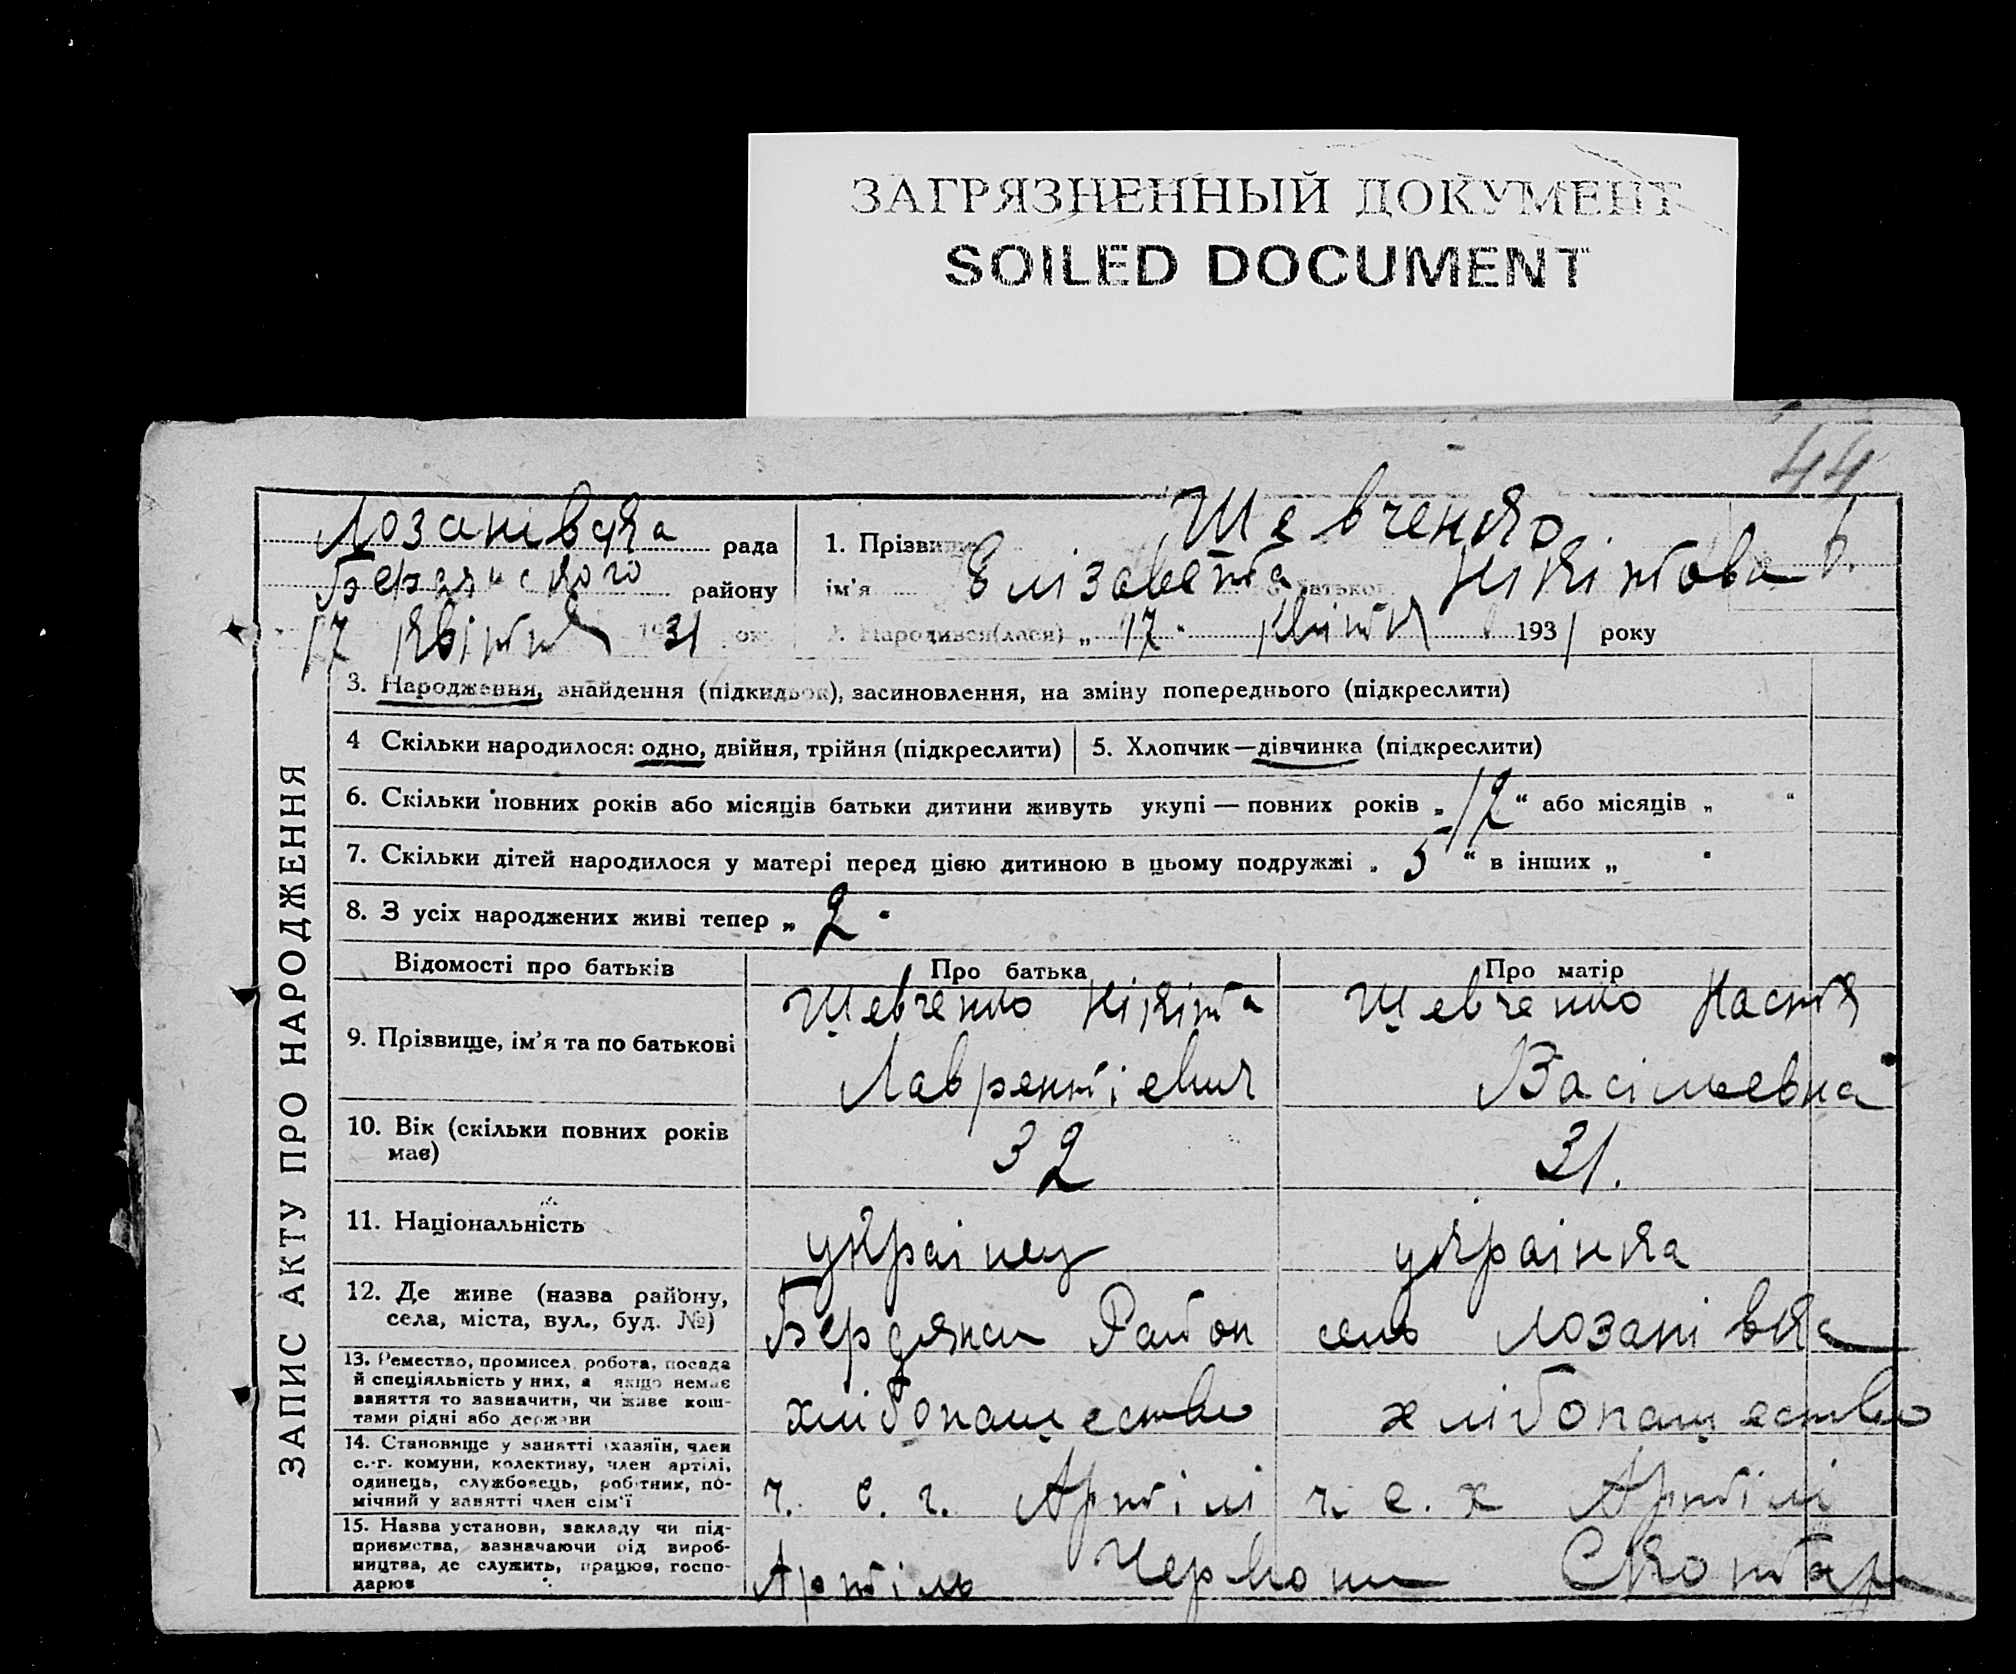 ЗАГРЯЗНЕННЫЙ ДОКУМЕНТ
SOILED DOCUMENT
44
Лозанівська рада
Бердянського району
17 квітня 1931 року
1. Прізвище Шевченко
ім'я Елізавета по батькові Нікітова
2. Народився(лася) „17" квітня 1931 року
ЗАПИС АКТУ ПРО НАРОДЖЕННЯ
3. Народження, знайдення (підкидьок), засиновлення, на зміну попереднього (підкреслити)
4 Скільки народилося: одно, двійня, трійня (підкреслити) 5. Хлопчик—дівчинка (підкреслити)
6. Скільки повних років або місяців батьки дитини живуть укупі — повних років „12" або місяців „ "
7. Скільки дітей народилося у матері перед цією дитиною в цьому подружжі „5" в інших „ "
8. З усіх народжених живі тепер „2"
Відомості про батьків Про батька Про матір
9. Прізвище, ім'я та по батькові
Шевченко Нікіта
Лаврентіевич
Шевченко Настя
Васільевна
10. Вік (скільки повних років
має)
32 31.
11. Національність українец українка
12. Де живе (назва району,
села, міста, вул., буд. №)
Бердянск Район село Лозанівка
13. Ремество, промисел, робота, посада
й спеціяльність у них, а якщо немає
заняття то зазначити, чи живе кош-
тами рідні або держави
хлібопашество хлібопашество
14. Становище у занятті (хазяїн, член
с.-г. комуни, колективу, член артілі,
одинець, службовець, робітник, по-
мічний у занятті член сім'ї
ч. с. г. Артілі ч. с. х Артілі
15. Назва установи, закладу чи під-
приємства, зазначаючи рід вироб-
ництва, де служить, працює, госпо-
дарює
Артіль Червони